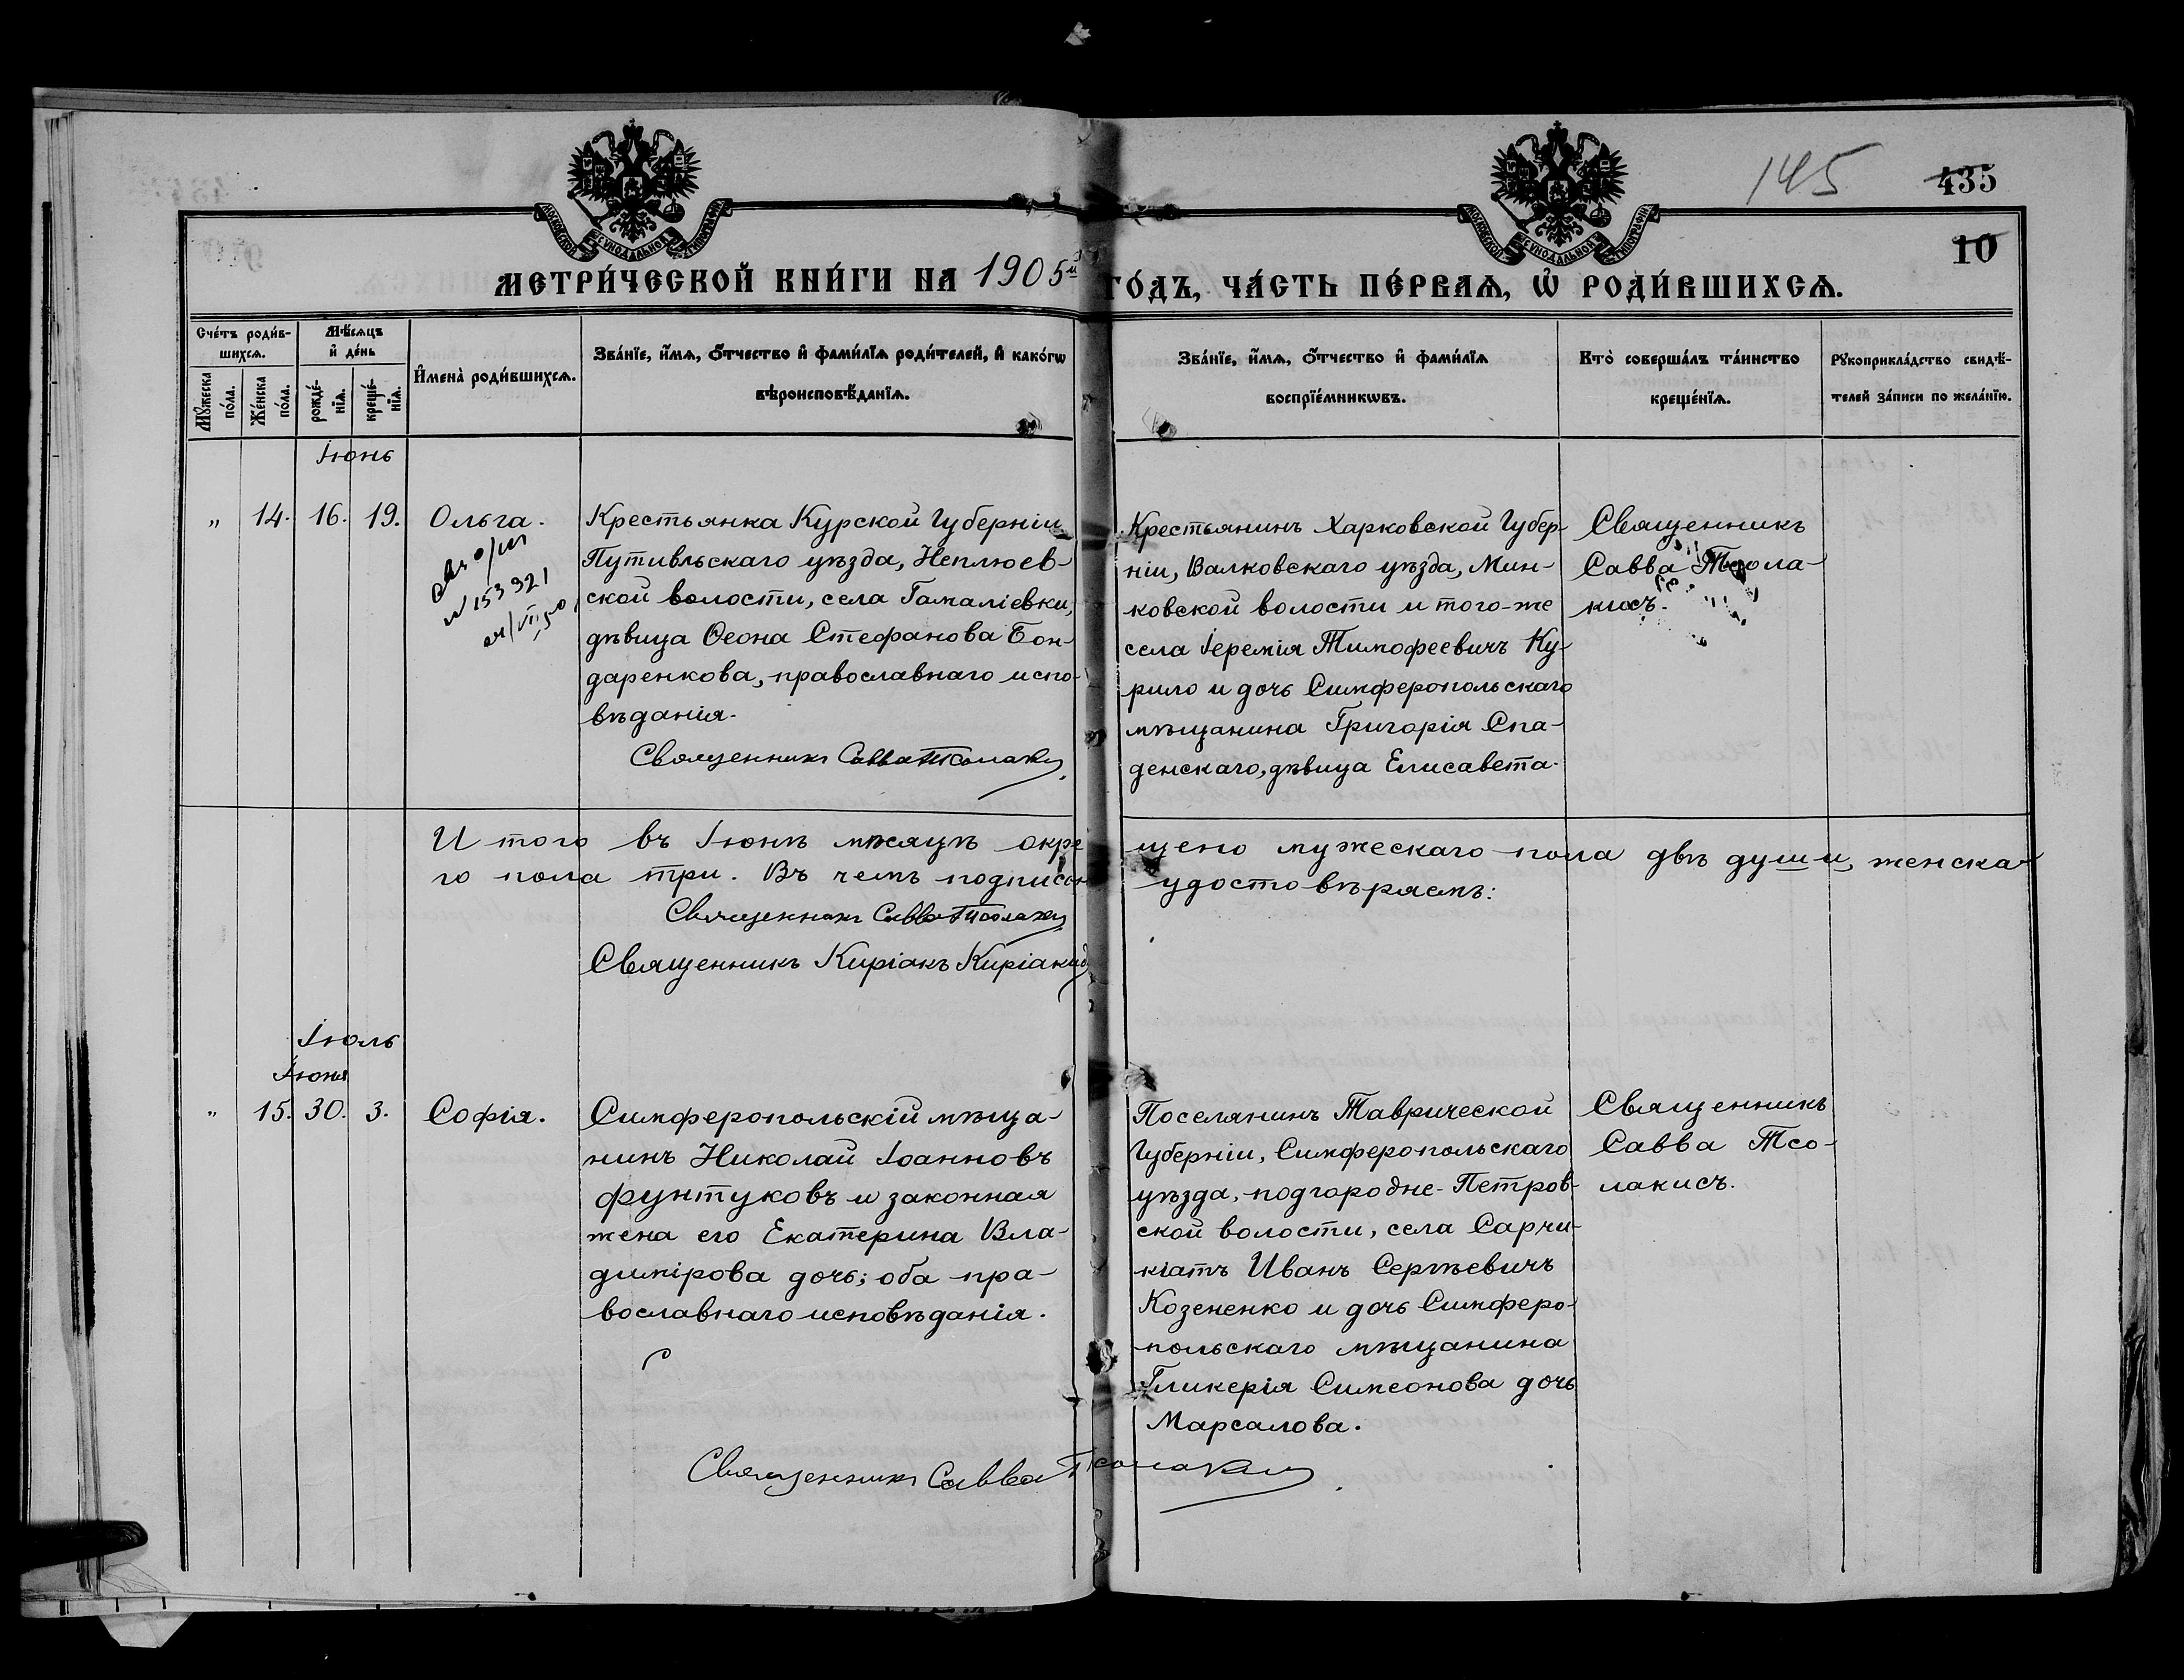 145
435
10
МОСКОВСКОЙ СѴНОДАЛЬНОЙ ТИПОГРАФІИ
МОСКОВСКОЙ СѴНОДАЛЬНОЙ ТИПОГРАФІИ
МЕТРИ́ЧЕСКОЙ КНИ́ГИ НА 1905й ГО́ДЪ, ЧА́СТЬ ПЕ́РВАѦ, Ѡ҆ РОДИ́ВШИХСѦ.
Сче́тъ роди́в-
шихсѧ.
Мѣ́сѧцъ
и҆ де́нь
Мꙋ́жеска
по́ла.
Же́нска
по́ла.
рожде́-
нїѧ.
креще́-
нїѧ.
И҆мена̀ роди́вшихсѧ.
Зва́нїе, и҆́мѧ, ѻ҆́тчество и҆ фами́лїѧ роди́телей, и҆ како́гѡ
вѣроисповѣ́данїѧ.
Зва́нїе, и҆́мѧ, ѻ҆́тчество и҆ фами́лїѧ
воспрїе́мникѡвъ.
Кто̀ соверша́лъ та́инство
креще́нїѧ.
Рꙋкоприкла́дство свидѣ́-
телей за́писи по жела́нїю.
Іюнь
„ 14. 16. 19. Ольга.
N 153921
Крестьянка Курской Губерніи
Путивльскаго уѣзда, Неплюев-
ской волости, села Гамаліевки,
дѣвица Ѳеона Стефанова Бон-
даренкова, православнаго испо-
вѣданія.
Священникъ Савва Тсолакис
Крестьянинъ Харковской Губер-
ніи, Валковскаго уѣзда, Мин-
ковской волости и того-же
села Іеремія Тимофеевичъ Ку-
рило и дочь Симферопольскаго
мѣщанина Григорія Спа-
денскаго, дѣвица Елисавета.
Священникъ
Савва Тсола-
кисъ.
И того въ Іюнѣ мѣсяцѣ окрещено мужескаго пола двѣ души, женска-
го пола три. Въ чемъ подписом удостовѣряемъ:
Священникъ Савва Тсолакис
Священникъ Киріакъ Киріакид
Іюль
Іюня
„ 15. 30. 3. Софія.
Симферопольскій мѣща-
нинъ Николай Іоанновъ
Фунтуковъ и законная
жена его Екатерина Вла-
димірова дочь; оба пра-
вославнаго исповѣданія.
Поселянинъ Таврической
Губерніи, Симферопольскаго
уѣзда, подгородне-Петров-
ской волости, села Сарчи-
кіатъ Иванъ Сергѣевичъ
Козененко и дочь Симферо-
польскаго мѣщанина
Гликерія Симеонова дочь
Марсалова.
Священникъ
Савва Тсо-
лакисъ.
Священникъ Савва Тсолакис